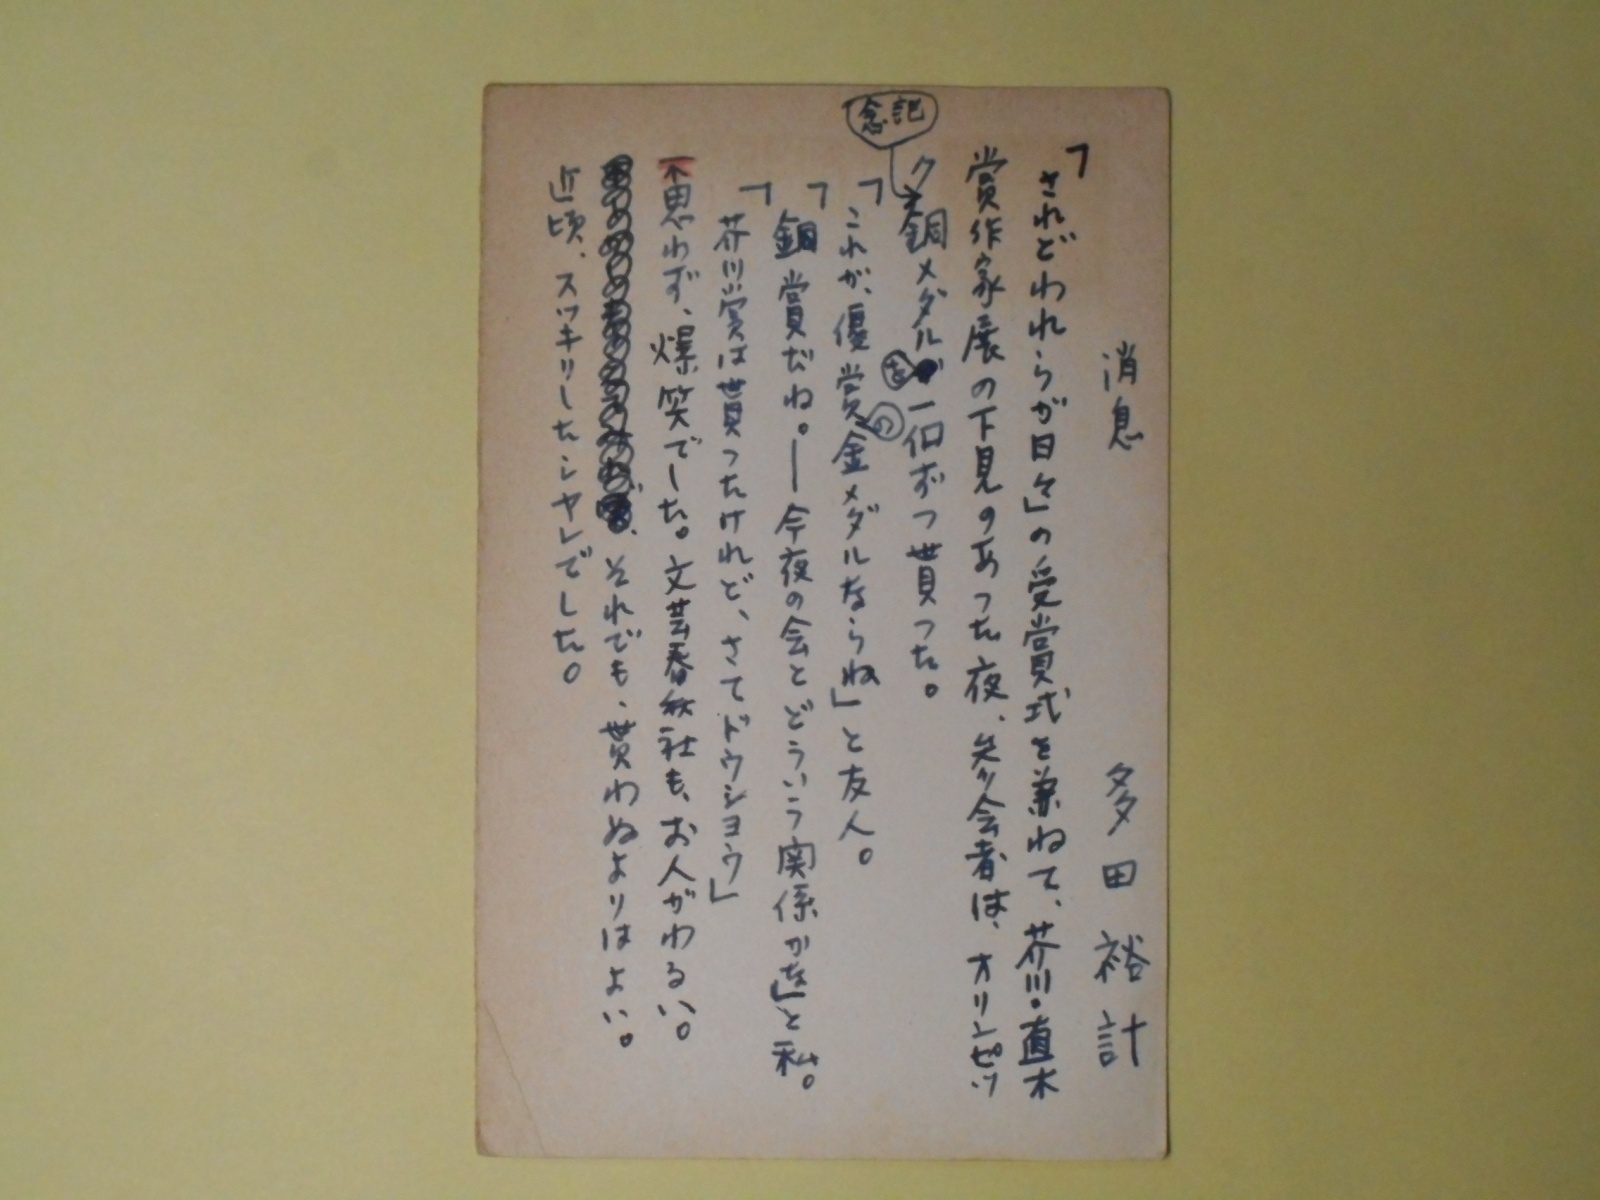 消息　多田裕計
「されどわれらが日々」の受賞式を兼ねて、芥川・直木
賞作家展の下見のあった夜、参会者は、オリンピツ
ク記念銅メダルを一個ずつ貰った。
「これが、優賞の金メダルならね」と友人。
「銅賞だね。―今夜の会と、どういう関係かな」と私。
「芥川賞は貰ったけれど、さてドウシヨウ」
思わず、爆笑でした。文芸春秋社も、お人がわるい。
それでも、貰わぬよりはよい。
近頃、スツキリしたシヤレでした。